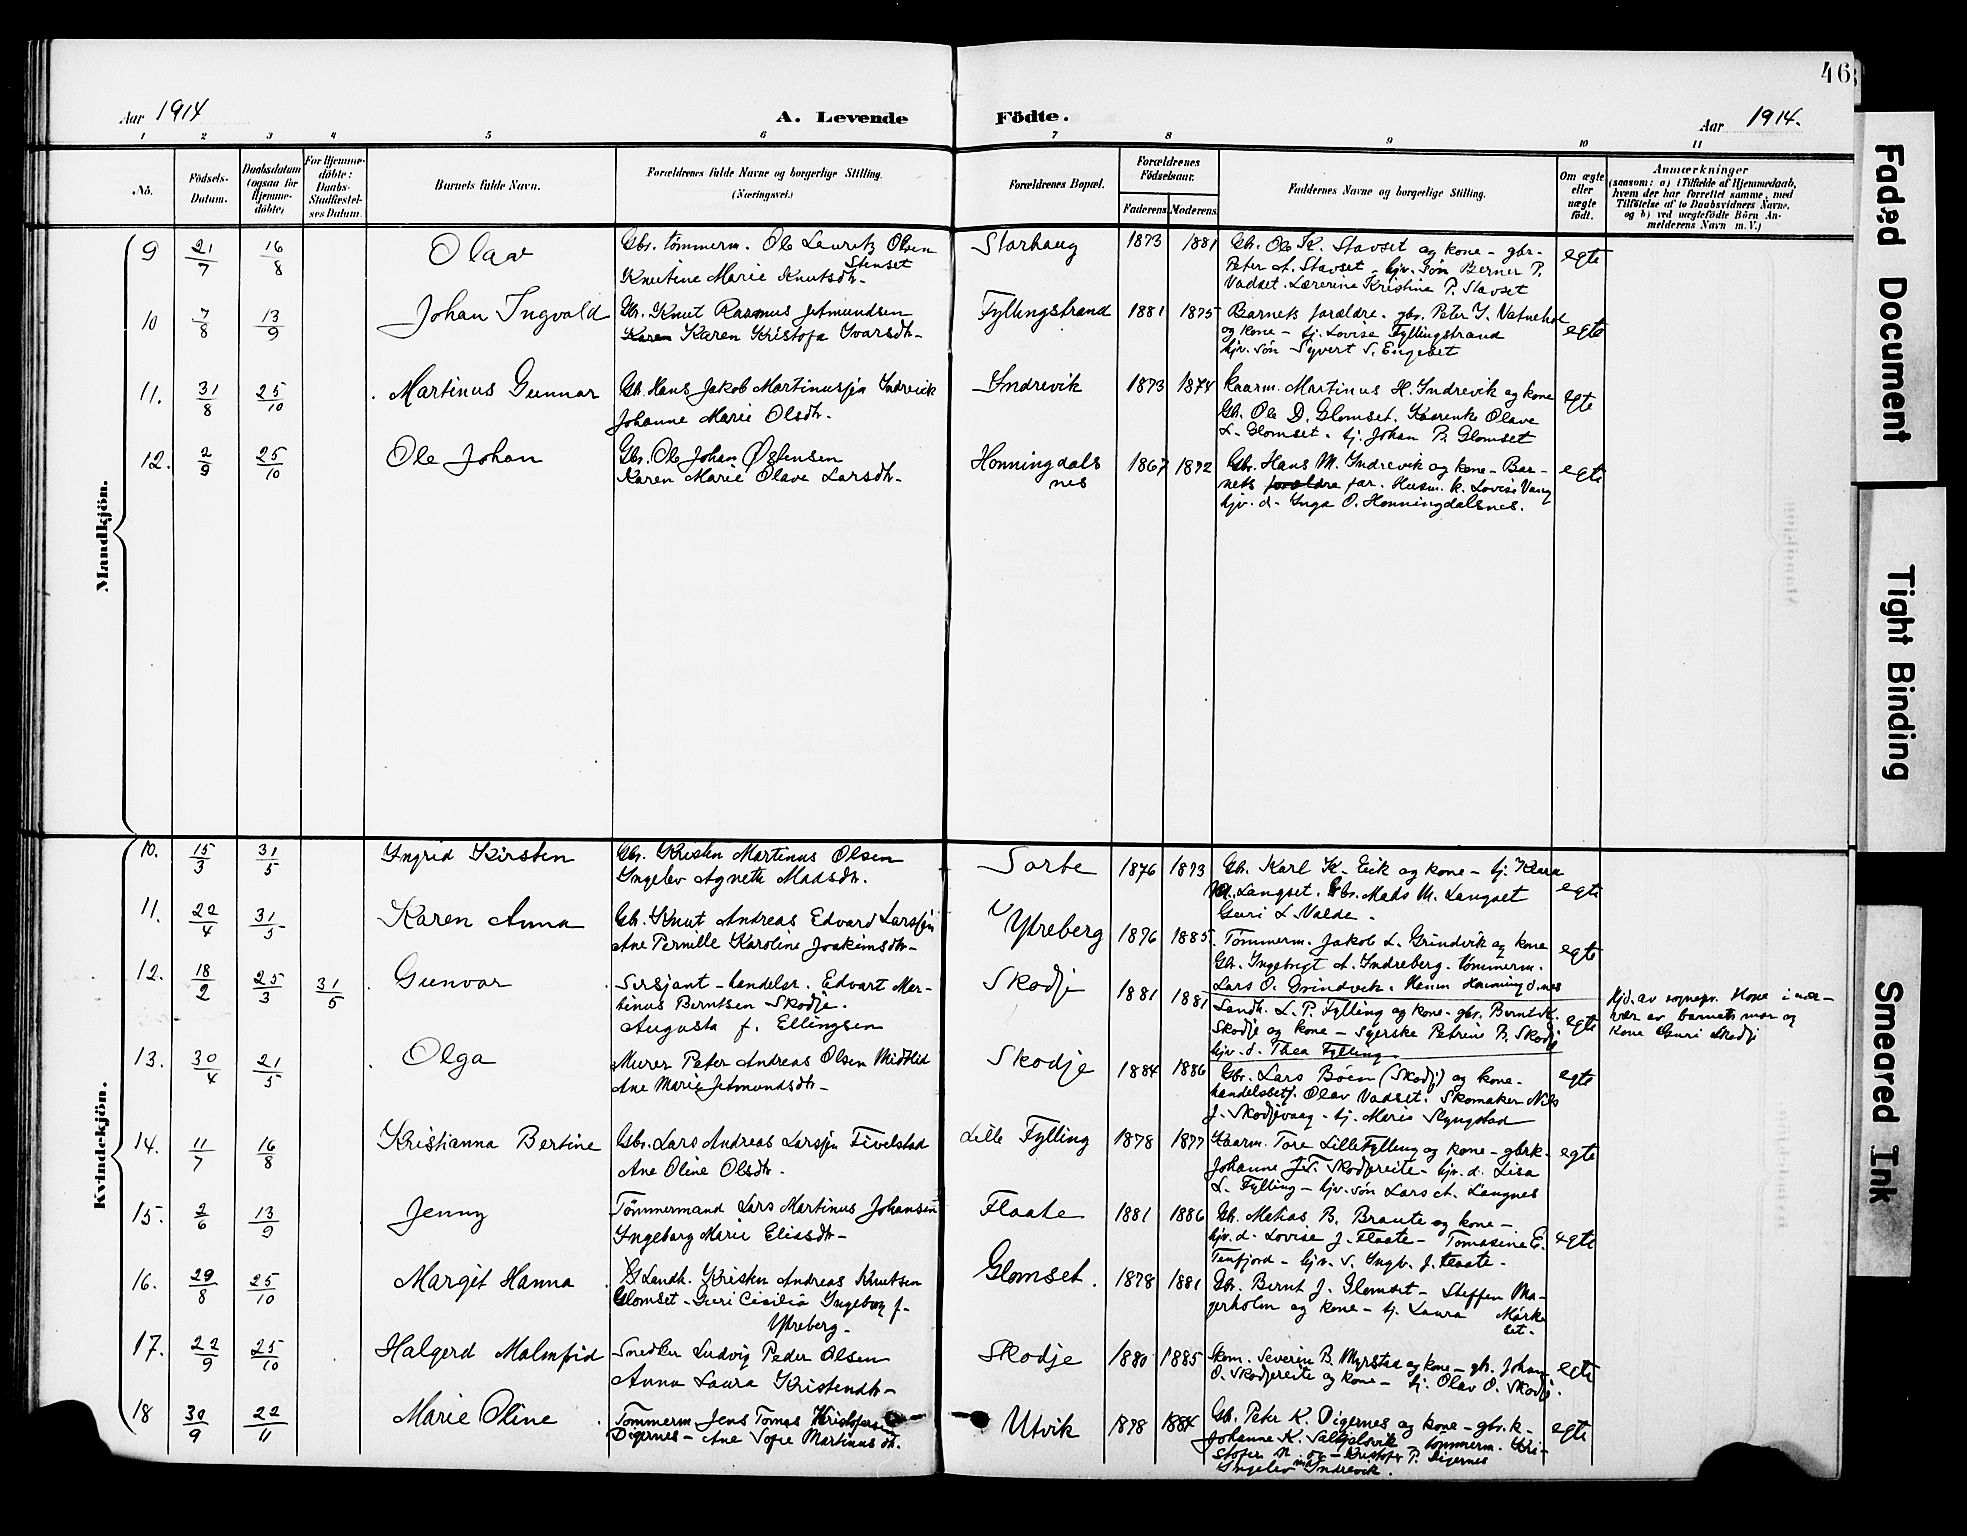 46
Aar 1914
A. Levende
Födte.
Aar 1914.
1 2 3 4 5 6 7 8 9 10 11
No.
Födsels-Datum.
Daabsdatum (ogsaa for Hjemme-döbte)
For Hjemme-döbte: Daabs-Stadfæstel-ses Datum.
Barnets fulde Navn.
Forældrenes fulde Navne og borgerlige Stilling. (Næringsvei.)
Forældrenes Bopæl.
Forældrenes Födselsaar.
Faderens Moderens
Faddernes Navne og borgerlige Stilling.
Om ægte eller uægte födt.
Anmærkninger
(saasom: a) i Tilfælde af Hjemmedaab,
hvem der har forrettet samme, med
Tilföielse af to Daabsvidners Navne,
og b) ved uægtefödte Börn An-
melderens Navn m. V.)
Mandkjön.
9 21/7 16/8 Olav
Gbr. tömmerm. Ole Lauritz Olsen
Stenset
Knutine Marie Knutsdtr.
Storhaug 1873 1881
Gbr. Ole K. Stavset og kone - gbr.
Peter A. Stavset - hjv. søn Berner P.
Vadset. Lærerine Kristine P. Stavset
egte
10 7/8 13/9 Johan Ingvald
Gbr. Knut Rasmus Jetmundsen
Karen Karen Kristofa Ivarsdtr.
Fyllingstrand 1881 1875
Barnets forældre. gbr. Peter I. Vatnehol
og kone - tj. Lovise Fyllingstrand
hjv. søn Syvert S. Engeset
egte
11. 31/8 25/10 Martinus Gunnar
Gbr. Hans Jakob Martinussøn Indrevik
Johanne Marie Olsdtr.
Indrevik 1873 1874
kaarm. Martinus H. Indrevik og kone
Gbr. Ole D. Glomset. Kaarenke Olave
L. Glomset. tj. Johan P. Glomset
egte
12. 2/9 25/10 Ole Johan
Gbr. Ole Johan Østensen
Karen Marie Olave Larsdtr.
Honningdals
nes
1867 1872
Gbr. Hans M. Indrevik og kone - Bar-
nets forældre far. Husm. k. Lovise Vang
hjv. d. Inga O. Honningdalsnes.
egte
Kvindekjön.
10. 15/3 31/5 Ingrid Kirsten
Gbr. Kristen Martinus Olsen
Ingelev Agnete Madsdtr.
Sorte 1876 1873
Gbr. Karl K. Eik og kone - tj. Klara
M. Langset. Gbr. Mads M. Langset
Guri L. Valde.
egte
11. 22/4 31/5 Karen Anna
Gbr. Knut Andreas Edvard Larssøn
Ane Pernille Karoline Joakimsdtr.
Ytreberg 1876 1885
Tömmerm. Jakob L. Grindvik og kone
Gbr. Ingebrigt A. Indreberg. tömmerm.
Lars O. Grindvik. Husm Honningd.nes
egte
12. 18/2 25/3 31/5 Gunvor
Sersjant - handelsr. Edvart Mar-
tinus Berntsen Skodje.
Augusta f. Ellingsen
Skodje 1881 1881
Landh. L. P. Fylling og kone - gbr. Bernt K.
Skodje og kone - Syerske Petrine B. Skodje
hjv. d. Thea Fylling
egte
Hjd. av sognepr. Hone i nær-
vær av barnets mor og
kone Guri Skodje
13. 30/4 21/5 Olga
Murer Peter Andreas Olsen Midtlid
Ane Marie Jetmundsdtr.
Skodje 1884 1886
Gbr. Lars Böen (Skodje) og kone.
handelsbetj. Olav Vadset. Skomaker Nils
J. Skodjevaag - tj. Marie Slyngstad
egte
14. 11/7 16/8 Kristianna Bertine
Gbr. Lars Andreas Larssøn Fivelstad
Ane Oline Olsdtr.
Lille Fylling 1878 1877
Kaarm. Tore Lillefylling og kone - gbrk.
Johanne J.T. Skodjereite - hjv. d. Lisa
L. Fylling - hjv. søn Lars A. Langnes
egte
15. 2/6 13/9 Jenny
Tømmermand Lars Martinus Johansen
Ingeborg Marie Eliasdtr.
Flaate 1881 1886
Gbr. Matias B. Braute og kone -
hjv. d. Lovise J. Flaate - Tomasine E.
Tenfjord - hjv. s. Ingv. J. Flaate.
egte
16. 29/8 25/10 Margit Hanna
Landh. Kristen Andreas Knutsen
Glomset - Guri Cicilia Ingeborg f.
Ytreberg.
Glomset. 1878 1881
Gbr. Bernt J. Glomset - Steffen Ma-
gerholm og kone - tj. Laura Mørke
set.
17. 22/9 25/10 Halgerd Malmfrid
Snedker Ludvig Peder Olsen
Anna Laura Kristendtr.
Skodje 1880 1885
Skom. Severin B. Myrstad og kone - gbr. Johan
O. Skodjereite og kone - tj. Olav O. Skodje.
egte
18 30/9 22/11 Marie Oline
Tømmerm Jens Tomas Kristofersen
Digernes - Ane Sofie Martinusdtr.
Utvik 1878 1884
Gbr. Peter K. Digernes og kone - gbr. k.
Johanne K. - tömmerm. Kri-
stofer N. og - Kristofer P. Digernes
Ingelev Indrevik.
egte
Faded Document
Tight Binding
Smeared Ink